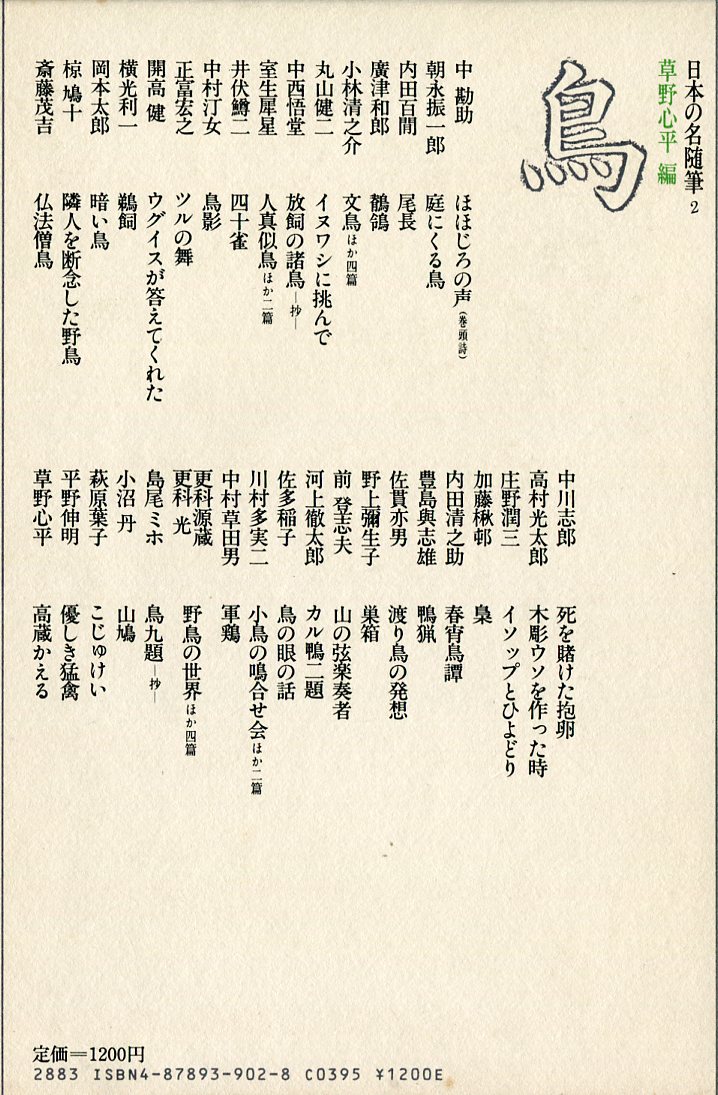 日本の名随筆 2
草野心平 編
鳥
中 勘助 ほほじろの声(巻頭詩)
朝永振一郎 庭にくる鳥
内田百閒 尾長
廣津和郎 鶺鴒
小林清之介 文鳥ほか四篇
丸山健二 イヌワシに挑んで
中西悟堂 放飼の諸鳥―抄―
室生犀星 人真似鳥ほか二篇
井伏鱒二 四十雀
中村汀女 鳥影
正富宏之 ツルの舞
開高 健 ウグイスが答えてくれた
横光利一 鵜飼
岡本太郎 暗い鳥
椋 鳩十 隣人を断念した野鳥
斎藤茂吉 仏法僧鳥
中川志郎 死を賭けた抱卵
高村光太郎 木彫ウソを作った時
庄野潤三 イソップとひよどり
加藤楸邨 梟
内田清之助 春宵鳥譚
豊島與志雄 鴨猟
佐貫亦男 渡り鳥の発想
野上彌生子 巣箱
前 登志夫 山の弦楽奏者
河上徹太郎 カル鴨二題
佐多稲子 鳥の眼の話
川村多実二 小鳥の鳴合せ会ほか二篇
中村草田男 軍鶏
更科源蔵
更科 光 野鳥の世界ほか四篇
島尾ミホ 鳥九題―抄―
小沼 丹 山鳩
萩原葉子 こじゅけい
平野伸明 優しき猛禽
草野心平 高蔵かえる
定価=1200円
2883 ISBN4-87893-902-8 C0395 ¥1200E